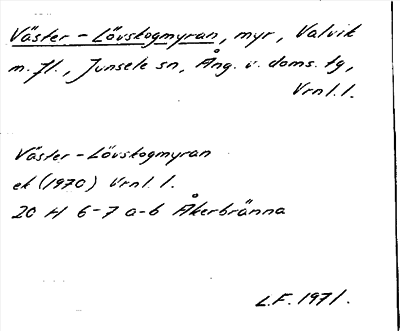 Väster-Lövskogmyran, myr, Valvik
m.fl., Junsele sn, Ång. v. doms. tg,
Vrnl.l.
Väster-Lövskogmyran
ek (1970) Vrnl. l.
20 H 6-7 a-b Åkerbränna
L.F. 1971.